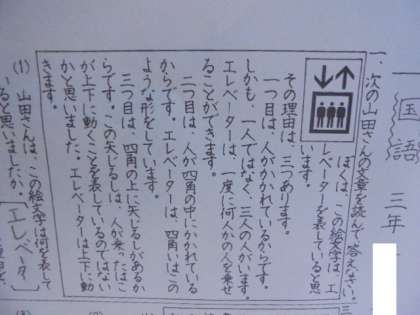 国語 三年
一、次の山田さんの文章を読んで答えなさい。
ぼくは、この絵文字は、エ
レベーターを表していると思
います。
その理由は、三つあります。
一つ目は、人がかかれているからです。
しかも、一人ではなく、三人の人がいます。
エレベーターは、一度に何人かの人を乗せ
ることができます。
二つ目は、人が四角の中にかかれている
からです。エレベーターは、四角いはこの
ような形をしています。
三つ目は、四角の上に矢じるしがあるか
らです。この矢じるしは、人が乗ったはこ
が上下に動くことを表しているのではない
かと思いました。エレベーターは上下に動
きます。
(1) 山田さんは、この絵文字は何を表して
いると思いましたか。
エレベータ